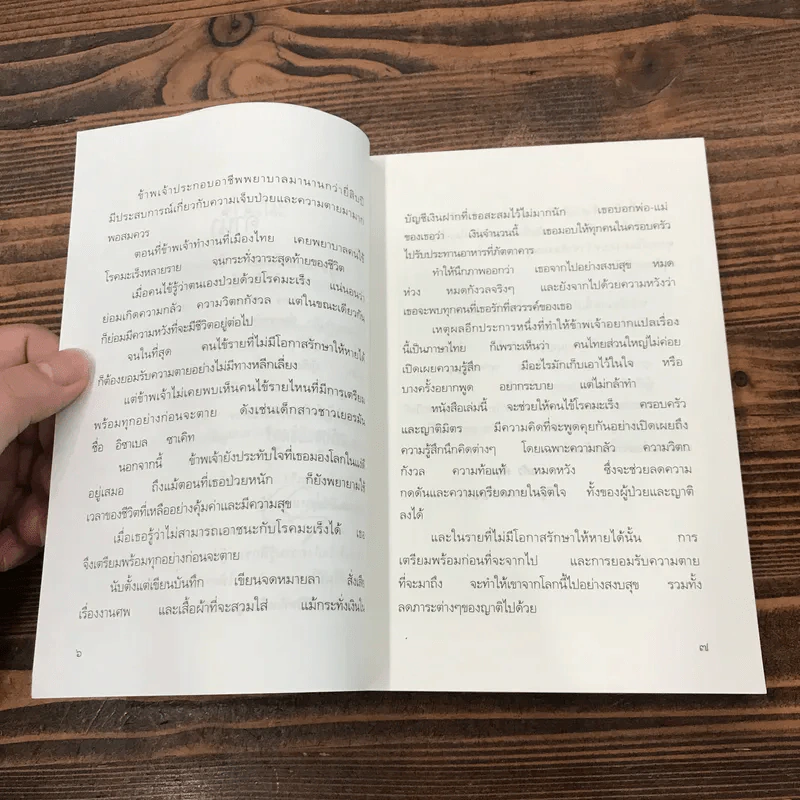 ข้าพเจ้าประกอบอาชีพพยาบาลมานานกว่ายี่สิบปี
มีประสบการณ์เกี่ยวกับความเจ็บป่วยและความตายมามาก
พอสมควร
ตอนที่ข้าพเจ้าทำงานที่เมืองไทย เคยพยาบาลคนไข้
โรคมะเร็งหลายราย จนกระทั่งวาระสุดท้ายของชีวิต
เมื่อคนไข้รู้ว่าตนเองป่วยด้วยโรคมะเร็ง แน่นอนว่า
ย่อมเกิดความกลัว ความวิตกกังวล แต่ในขณะเดียวกัน
ก็ย่อมมีความหวังที่จะมีชีวิตอยู่ต่อไป
จนในที่สุด คนไข้รายที่ไม่มีโอกาสรักษาให้หายได้
ก็ต้องยอมรับความตายอย่างไม่มีทางหลีกเลี่ยง
แต่ข้าพเจ้าไม่เคยพบเห็นคนไข้รายไหนที่มีการเตรียม
พร้อมทุกอย่างก่อนจะตาย ดังเช่นเด็กสาวชาวเยอรมัน
ชื่อ อิซาเบล ซาเคิท
นอกจากนี้ ข้าพเจ้ายังประทับใจที่เธอมองโลกในแง่ดี
อยู่เสมอ ถึงแม้ตอนที่เธอป่วยหนัก ก็ยังพยายามใช้
เวลาของชีวิตที่เหลืออย่างคุ้มค่าและมีความสุข
เมื่อเธอรู้ว่าไม่สามารถเอาชนะกับโรคมะเร็งได้ เธอ
จึงเตรียมพร้อมทุกอย่างก่อนจะตาย
นับตั้งแต่เขียนบันทึก เขียนจดหมายลา สั่งเสีย
เรื่องงานศพ และเสื้อผ้าที่จะสวมใส่ แม้กระทั่งเงินใน
๖
บัญชีเงินฝากที่เธอสะสมไว้ไม่มากนัก เธอบอกพ่อ-แม่
ของเธอว่า เงินจำนวนนี้ เธอมอบให้ทุกคนในครอบครัว
ไปรับประทานอาหารที่ภัตตาคาร
ทำให้นึกภาพออกว่า เธอจากไปอย่างสงบสุข หมด
ห่วง หมดกังวลจริงๆ และยังจากไปด้วยความหวังว่า
เธอจะพบทุกคนที่เธอรักที่สวรรค์ของเธอ
เหตุผลอีกประการหนึ่งที่ทำให้ข้าพเจ้าอยากแปลเรื่อง
นี้เป็นภาษาไทย ก็เพราะเห็นว่า คนไทยส่วนใหญ่ไม่ค่อย
เปิดเผยความรู้สึก มีอะไรมักเก็บเอาไว้ในใจ หรือ
บางครั้งอยากพูด อยากระบาย แต่ไม่กล้าทำ
หนังสือเล่มนี้ จะช่วยให้คนไข้โรคมะเร็ง ครอบครัว
และญาติมิตร มีความคิดที่จะพูดคุยกันอย่างเปิดเผยถึง
ความรู้สึกนึกคิดต่างๆ โดยเฉพาะความกลัว ความวิตก
กังวล ความท้อแท้ หมดหวัง ซึ่งจะช่วยลดความ
กดดันและความเครียดภายในจิตใจ ทั้งของผู้ป่วยและญาติ
ลงได้
และในรายที่ไม่มีโอกาสรักษาให้หายได้นั้น การ
เตรียมพร้อมก่อนที่จะจากไป และการยอมรับความตาย
ที่จะมาถึง จะทำให้เขาจากโลกนี้ไปอย่างสงบสุข รวมทั้ง
ลดภาระต่างๆของญาติไปด้วย
๗